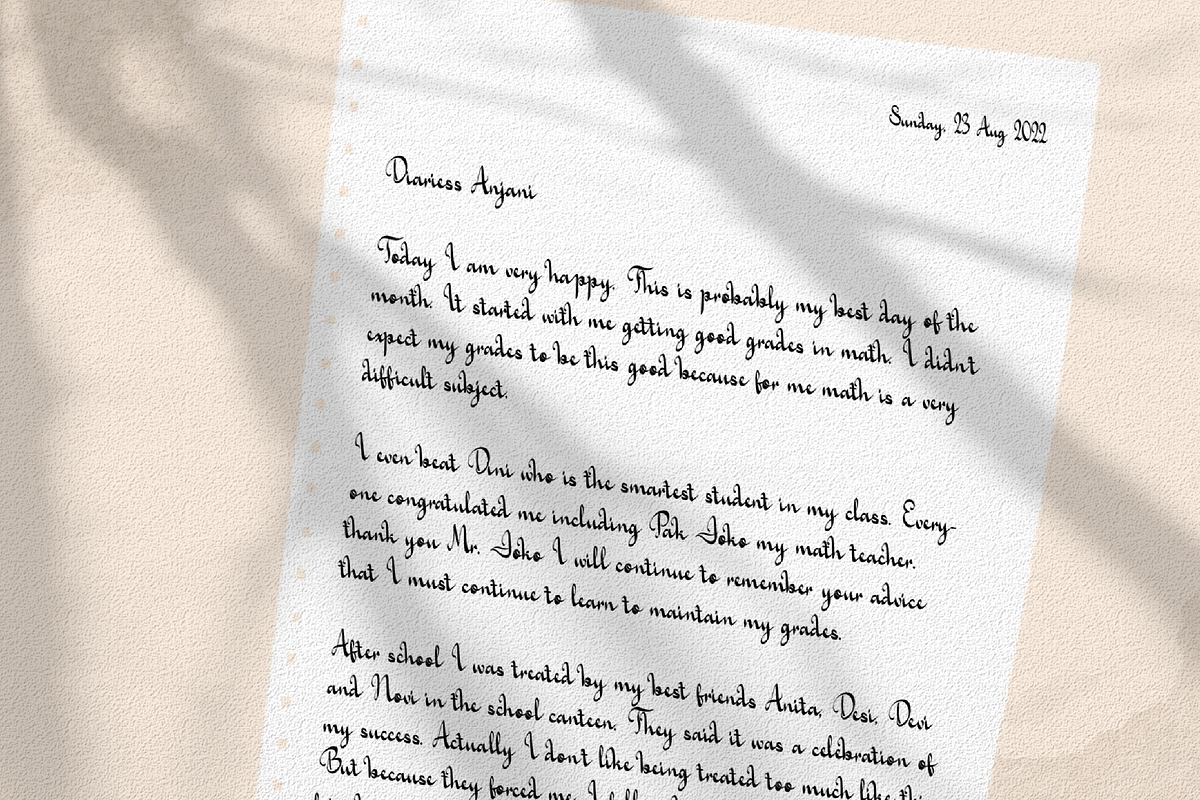 Sunday, 23 Aug 2022
Diariess Anjani
Today I am very happy. This is probably my best day of the
month. It started with me getting good grades in math. I didnt
expect my grades to be this good because for me math is a very
difficult subject.
I even beat Dini who is the smartest student in my class. Every-
one congratulated me including Pak Joko my math teacher.
thank you Mr. Joko I will continue to remember your advice
that I must continue to learn to maintain my grades.
After school I was treated by my best friends Anita, Desi, Devi
and Novi in the school canteen. They said it was a celebration of
my success. Actually I dont like being treated too much like
But because they forced me, I